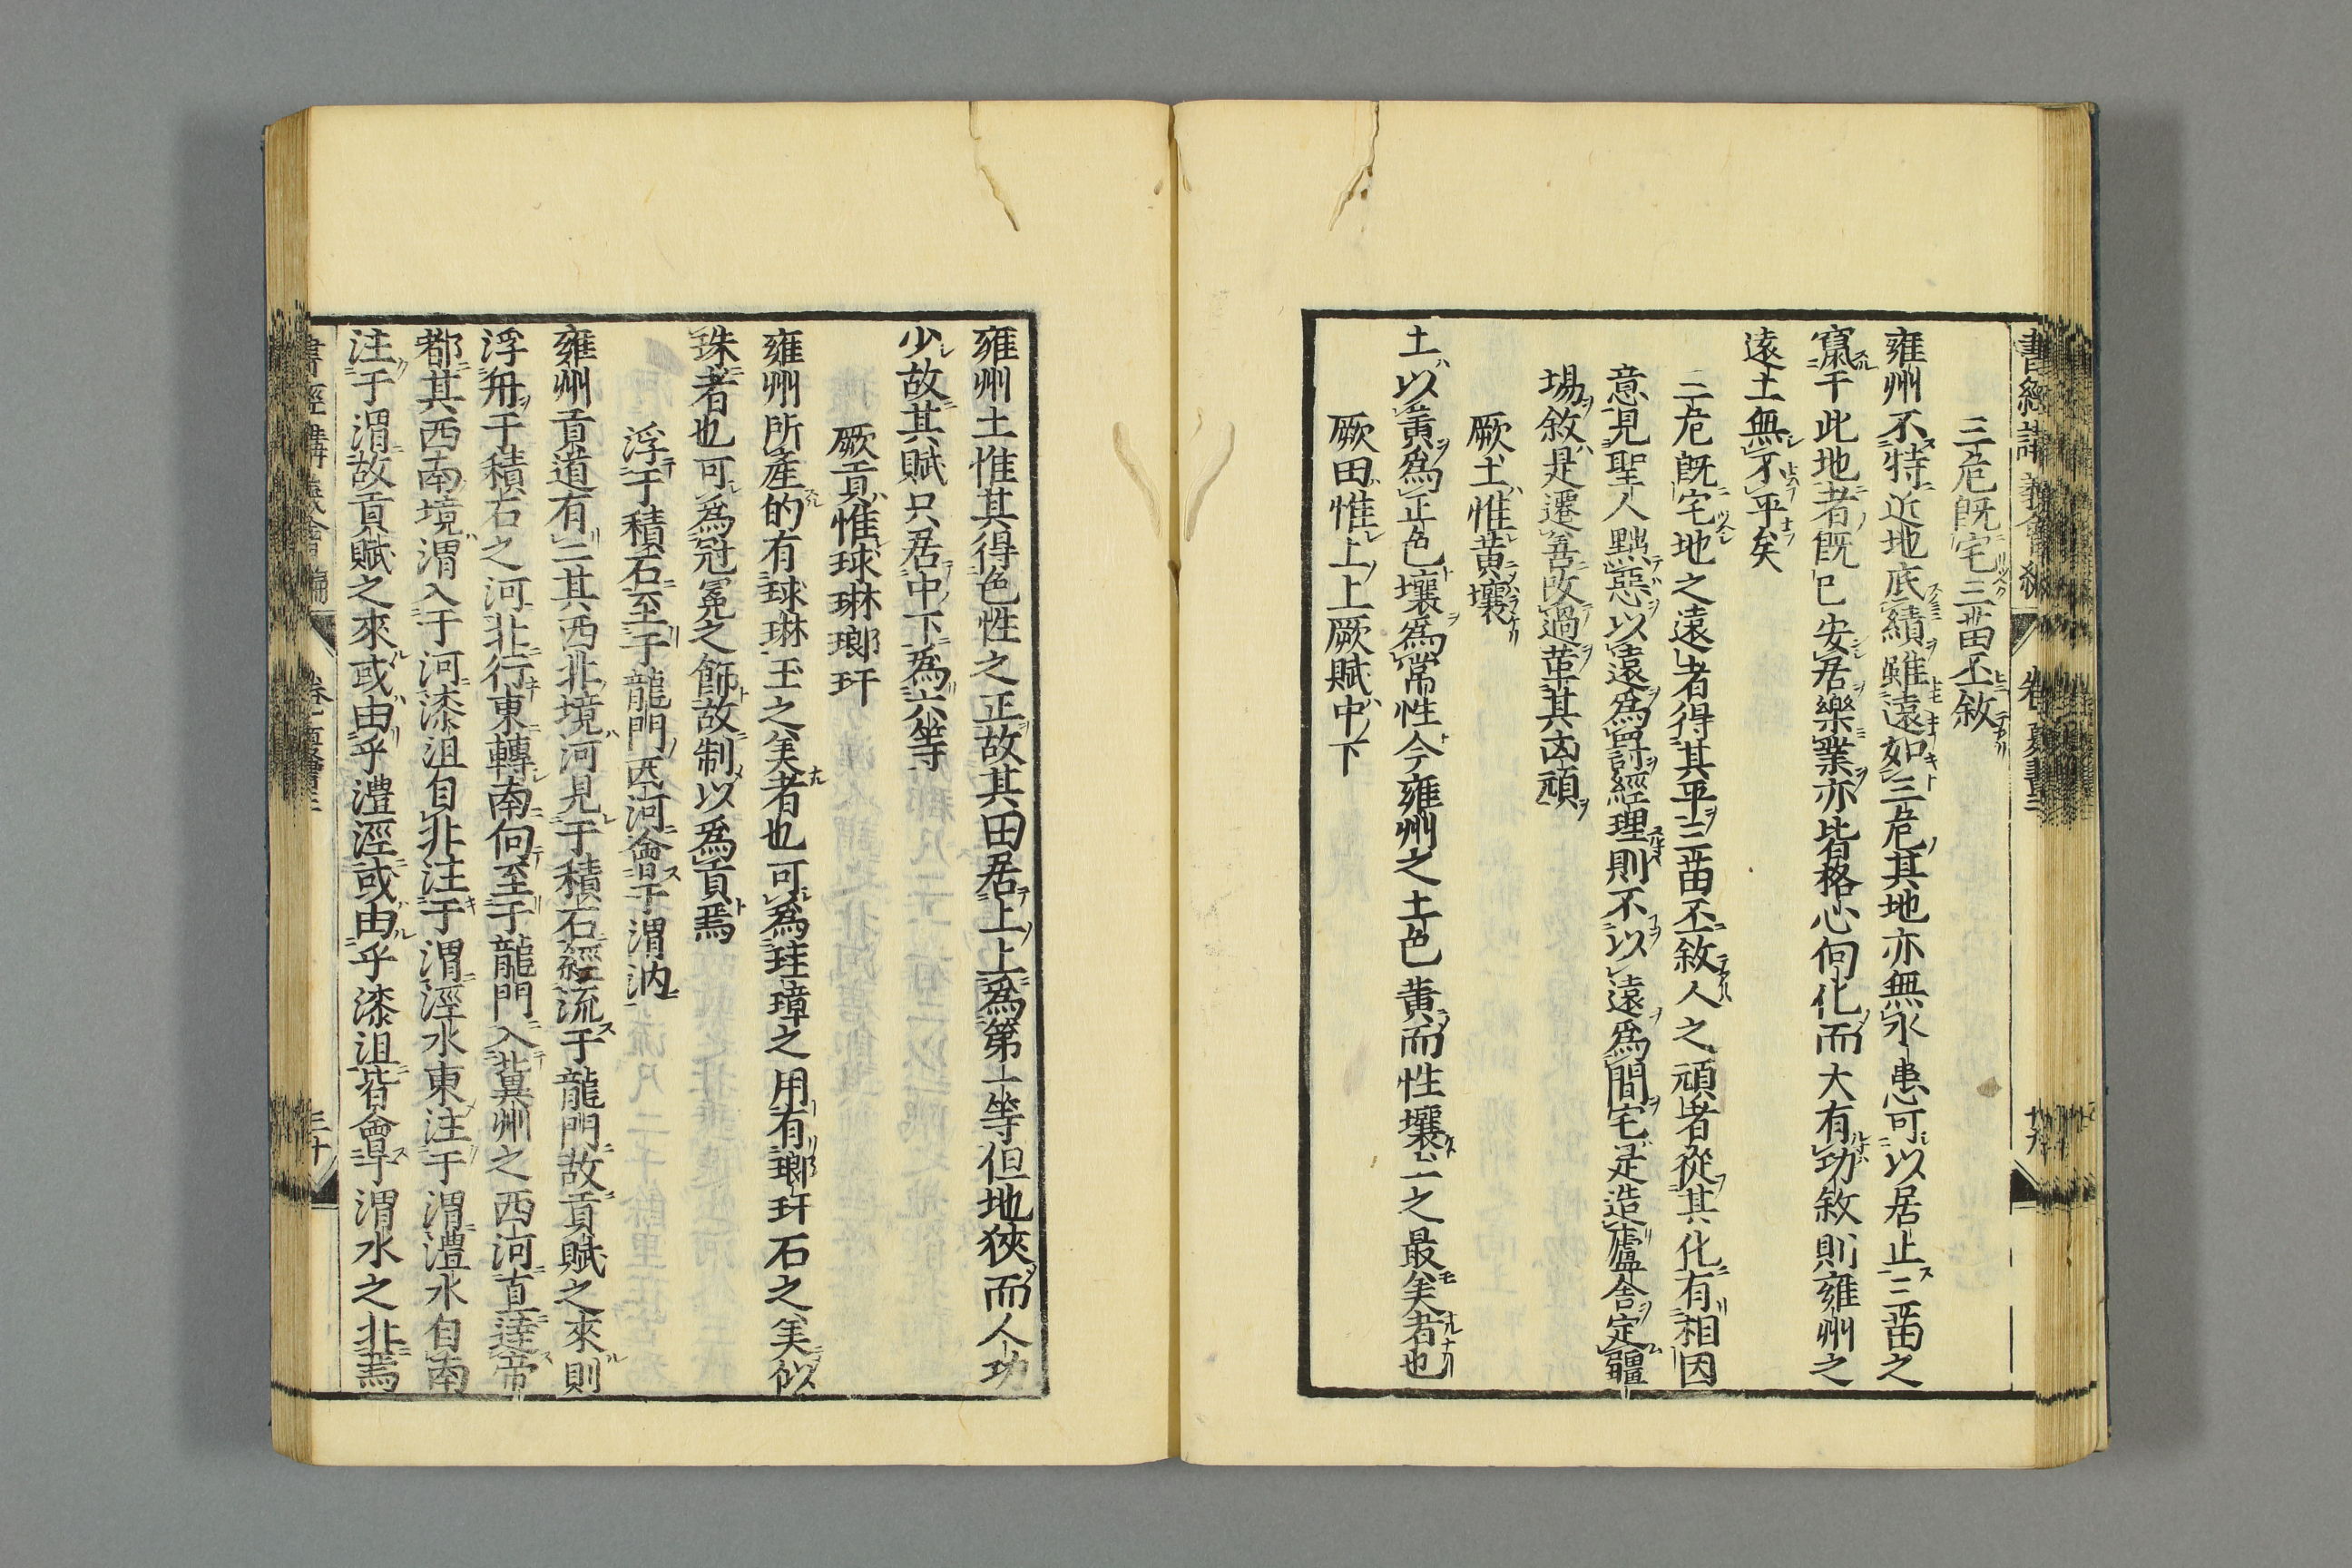 三危既宅三苗丕敘
雍州不特近地底績雖遠如三危其地亦無水患可以居止三苗之
竄于此地者既已安居樂業亦皆格心向化而大有功敘則雍州之
遠土無不平矣
三危既宅地之遠者得其平三苗丕敘人之頑者從其化有相因
意見聖人黜惡以遠為罰經理則不以遠為間宅是造廬舍定疆
場敘是遷善改過革其凶頑
厥土惟黃壤
土以黃為正色壤為常性今雍州之土色黃而性壤土之最美者也
厥田惟上上厥賦中下
雍州土惟其得色性之正故其田居上上為第一等但地狹而人功
少故其賦只居中下為六等
厥貢惟球琳瑯玕
雍州所產的有球琳玉之美者也可為珪璋之用有瑯玕石之美似
珠者也可為冠冕之飾故制以為貢焉
浮于積石至于龍門西河會于渭汭
雍州貢道有二其西北境河見于積石經流于龍門故貢賦之來則
浮舟于積石之河北行東轉南向至于龍門入冀州之西河直達帝
都其西南境渭入于河漆沮自北注于渭涇水東注于渭灃水自南
注于渭故貢賦之來或由乎灃涇或由乎漆沮皆會于渭水之北焉